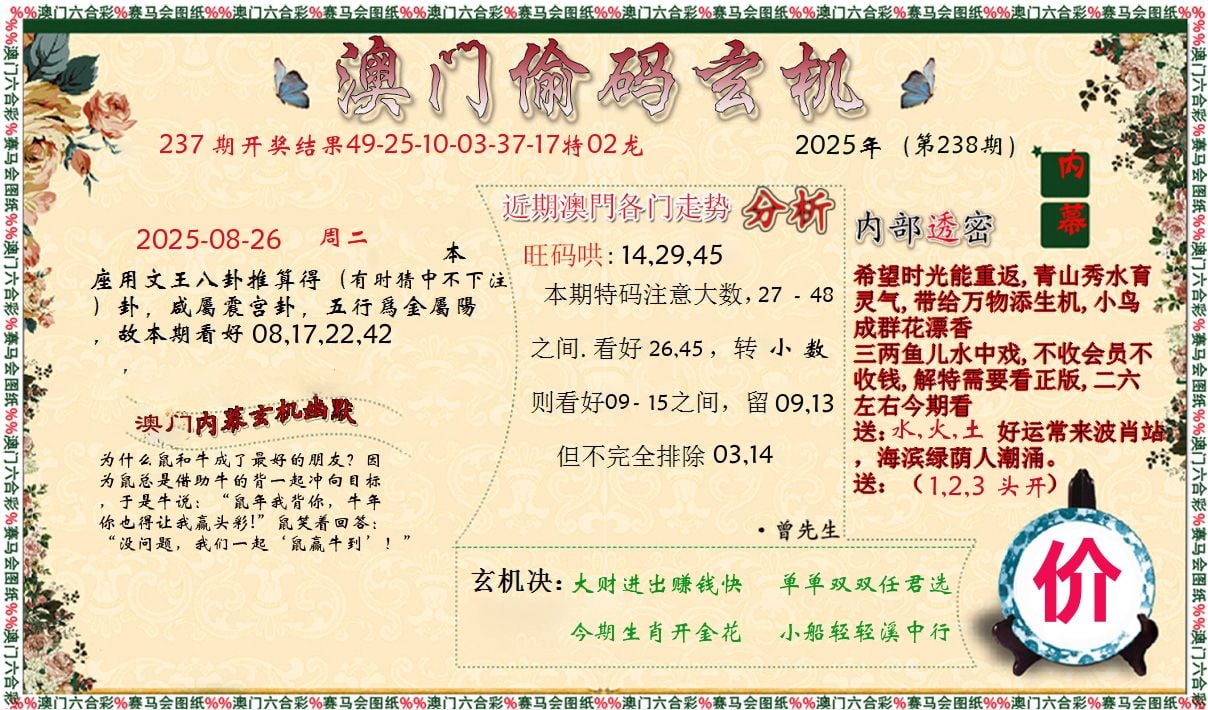 %%澳门六合彩%赛马会图纸%%澳门六合彩%赛马会图纸%%澳门六合彩%赛马会图纸%%澳门六合彩%赛马会图纸%%澳门六合彩%赛马会图纸%%澳门六合彩%赛马会图纸%%
澳门偷码玄机
237期开奖结果49-25-10-03-37-17特02龙
2025年（第238期）
内幕
2025-08-26 周二
本
座用文王八卦推算得（有时猜中不下注
）卦，咸屬震宫卦，五行爲金屬陽
，故本期看好 08,17,22,42
，
澳门内幕玄机幽默
为什么鼠和牛成了最好的朋友？因
为鼠总是借助牛的背一起冲向目标
，于是牛说：“鼠年我背你，牛年
你也得让我赢头彩!”鼠笑着回答：
“没问题，我们一起‘鼠赢牛到’！”
近期澳門各门走势 分析
旺码哄: 14,29,45
本期特码注意大数, 27 - 48
之间. 看好 26,45 ，转 小 数
则看好09 - 15之间，留 09,13
但不完全排除 03,14
·曾先生
内部透密
希望时光能重返, 青山秀水育
灵气, 带给万物添生机, 小鸟
成群花漂香
三两鱼儿水中戏, 不收会员不
收钱, 解特需要看正版, 二六
左右今期看
送: 水, 火, 土 好运常来波肖站
，海滨绿荫人潮涌。
送: （1,2,3 头开）
玄机决: 大财进出赚钱快 单单双双任君选
今期生肖开金花 小船轻轻溪中行
价
%%澳门六合彩%赛马会图纸%%澳门六合彩%赛马会图纸%%澳门六合彩%赛马会图纸%%澳门六合彩%赛马会图纸%%澳门六合彩%赛马会图纸%%澳门六合彩%赛马会图纸%%